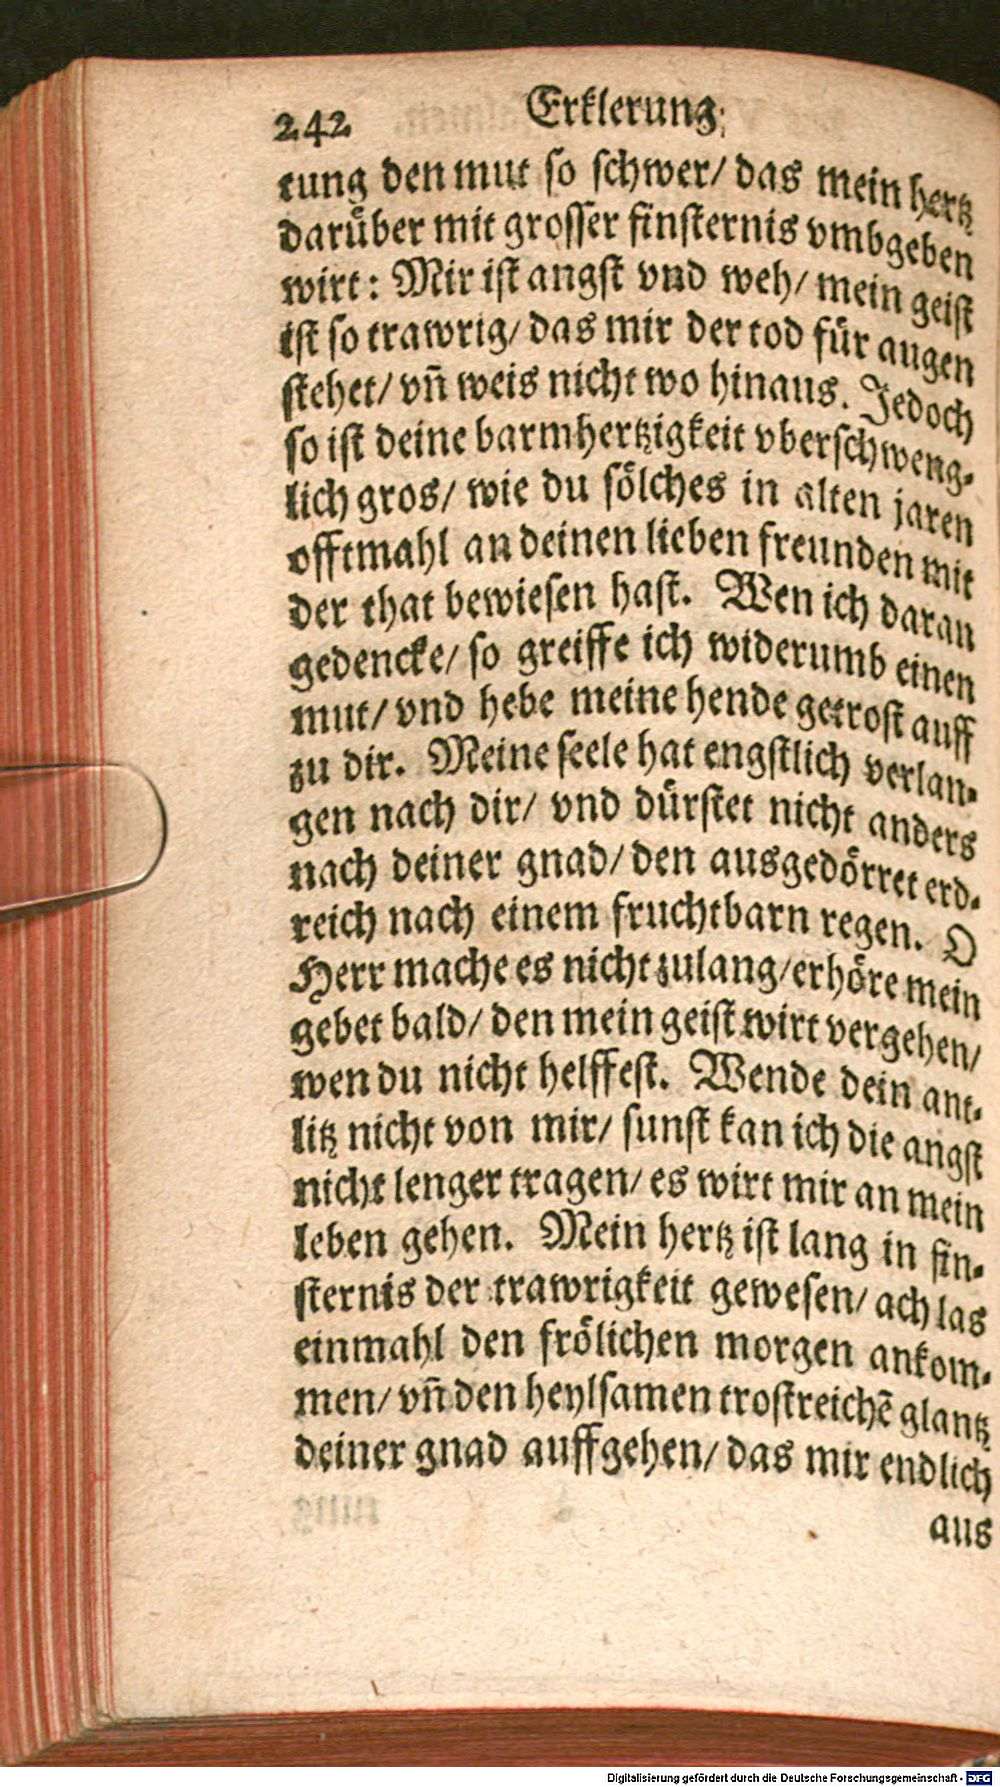 242 Erklerung
tung den mut so schwer/ das mein hertz
darüber mit grosser finsternis vmbgeben
wirt: Mir ist angst vnd weh/ mein geist
ist so trawrig/ das mir der tod für augen
stehet/ vñ weis nicht wo hinaus. Jedoch
so ist deine barmhertzigkeit vberschweng-
lich gros/ wie du sölches in alten jaren
offtmahl an deinen lieben freunden mit
der that bewiesen hast. Wen ich daran
gedencke/ so greiffe ich widerumb einen
mut/ vnd hebe meine hende getrost auff
zu dir. Meine seele hat engstlich verlan-
gen nach dir/ vnd dürstet nicht anders
nach deiner gnad/ den ausgedörret erd-
reich nach einem fruchtbarn regen. O
Herr mache es nicht zulang/ erhöre mein
gebet bald/ den mein geist wirt vergehen/
wen du nicht helffest. Wende dein ant-
litz nicht von mir/ sunst kan ich die angst
nicht lenger tragen/ es wirt mir an mein
leben gehen. Mein hertz ist lang in fin-
sternis der trawrigkeit gewesen/ ach las
einmahl den frölichen morgen ankom-
men/ vñ den heylsamen trostreichẽ glantz
deiner gnad auffgehen/ das mir endlich
aus
Digitalisierung gefördert durch die Deutsche Forschungsgemeinschaft - DFG